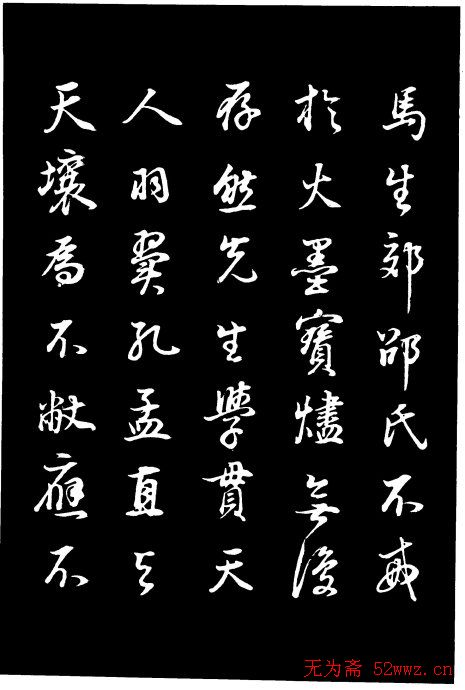 馬生郊邵氏不戒
於火墨寶燼無復
存然先生學貫天
人羽翼孔孟直与
天壤為不敝應不
无为斋 52wwz.cn